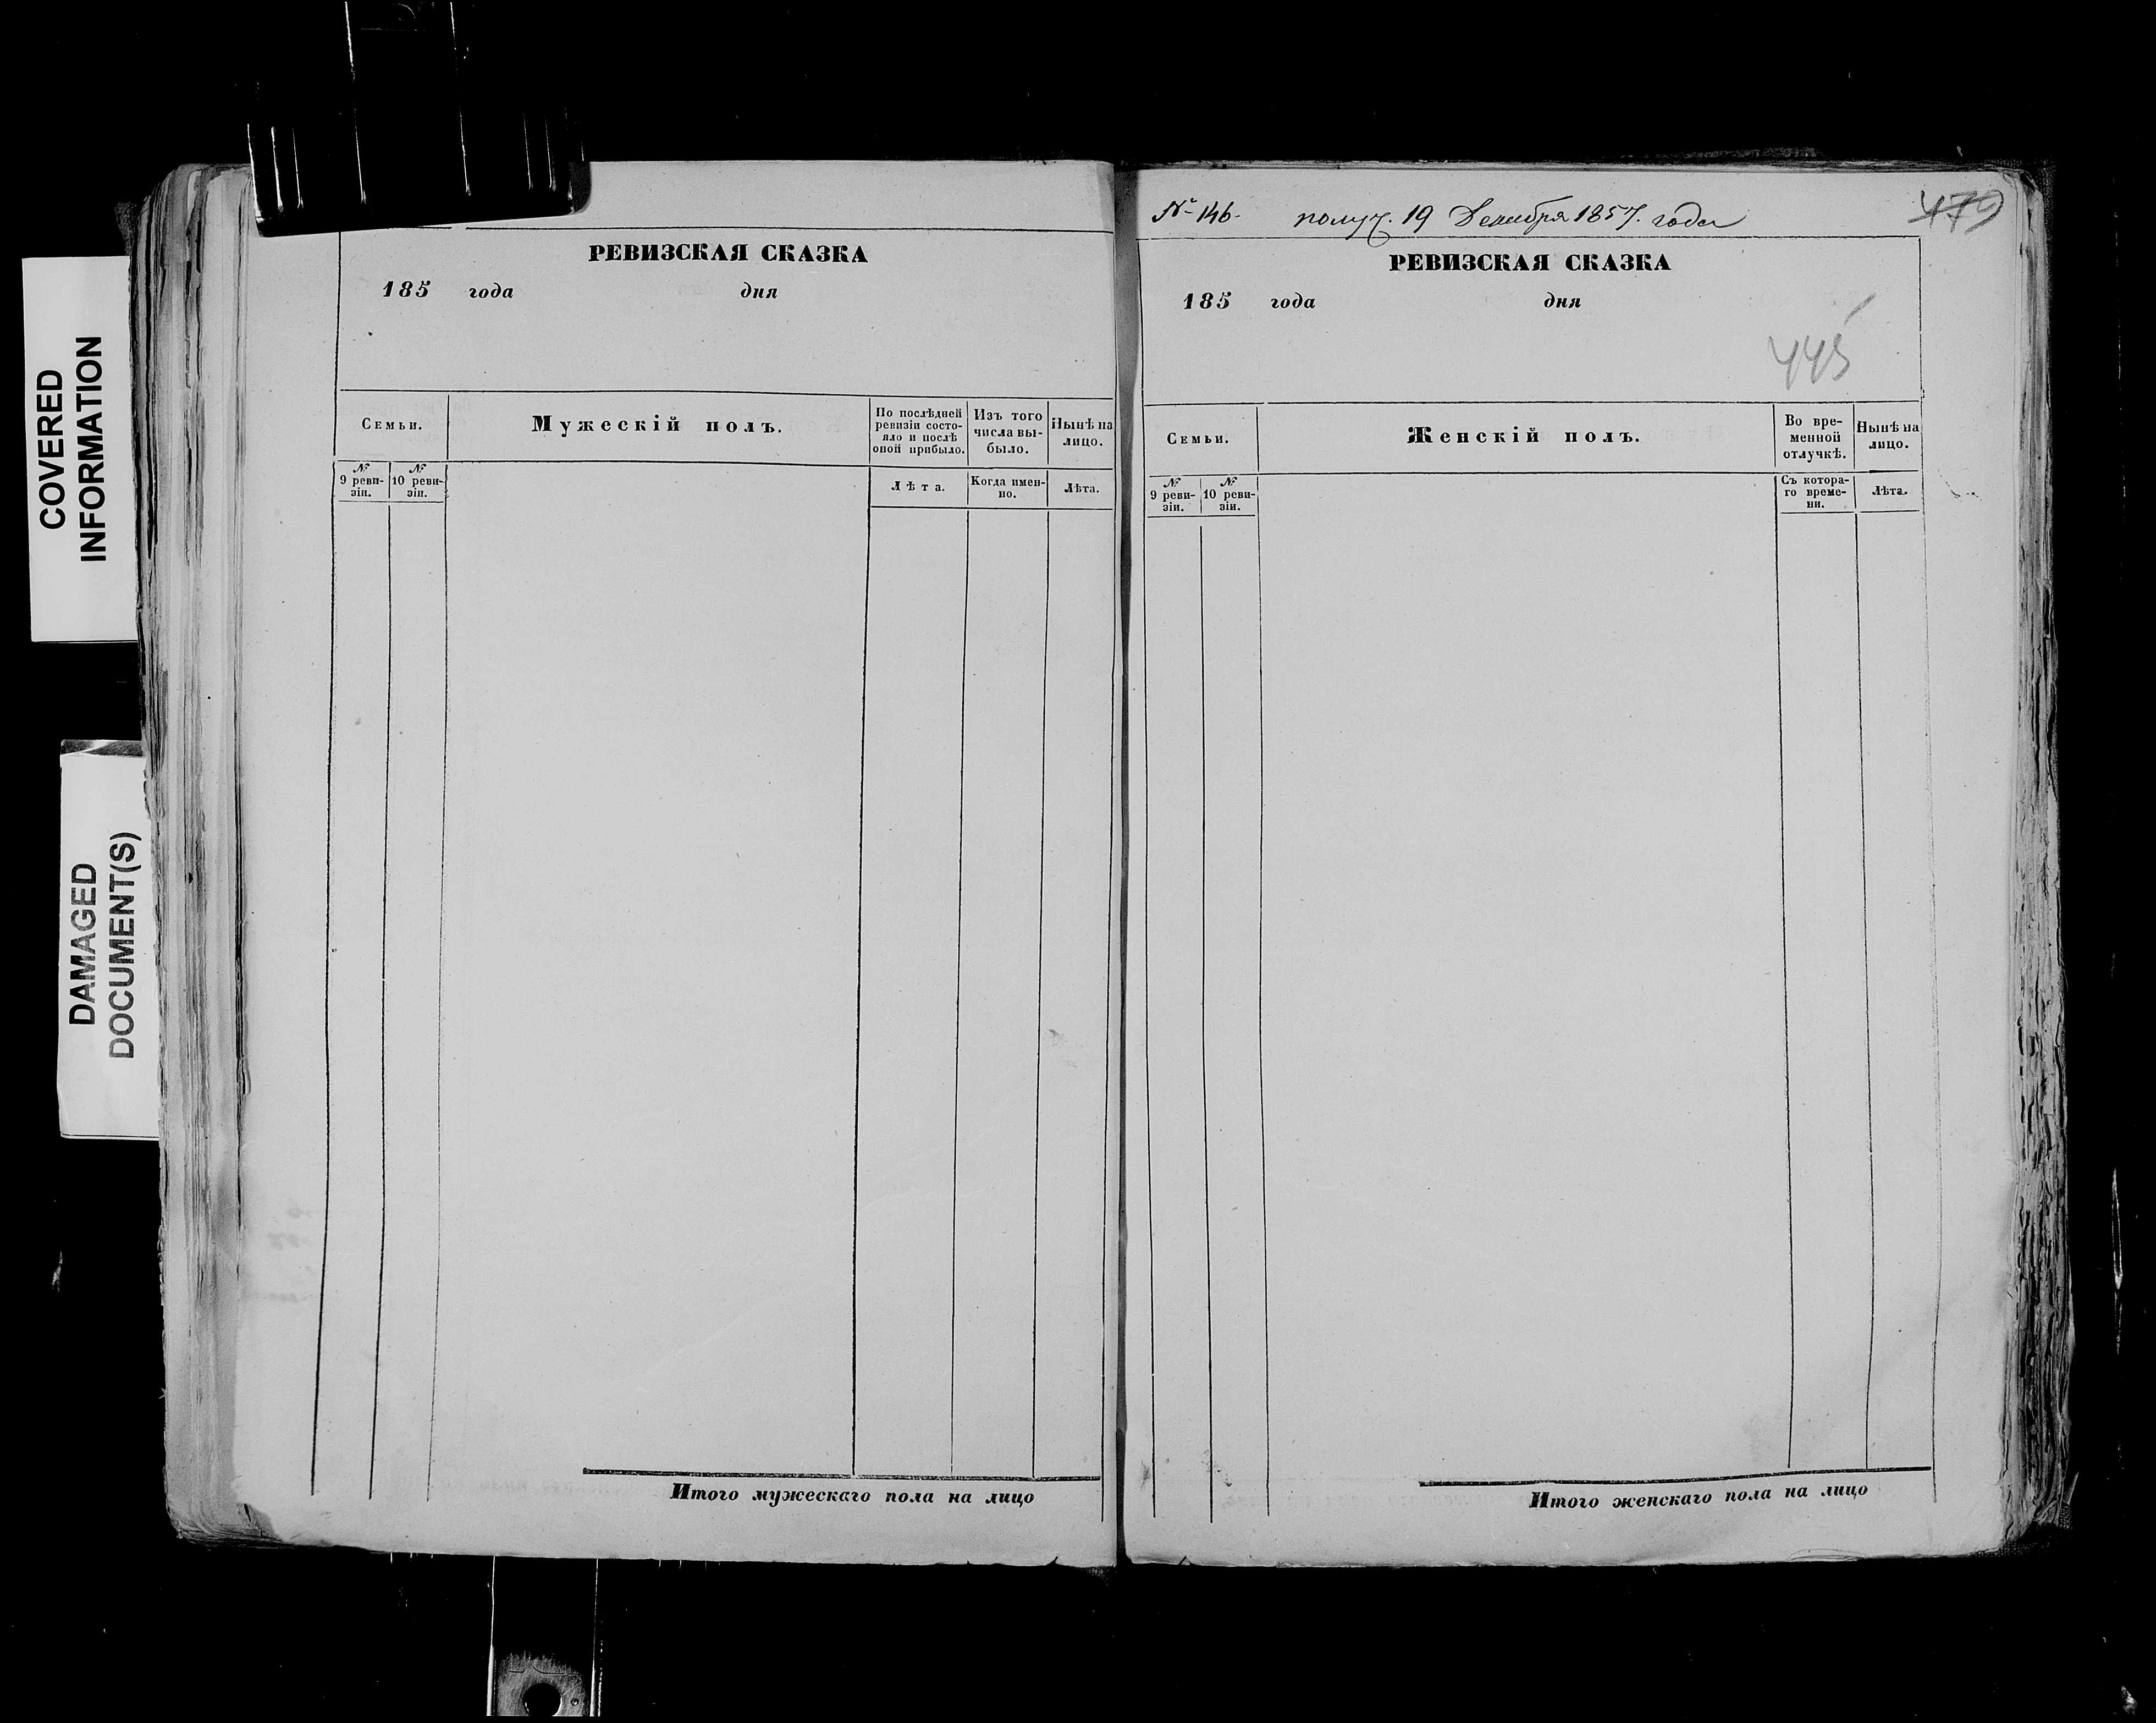 COVERED
INFORMATION
DAMAGED
DOCUMENT(S)
РЕВИЗСКАЯ СКАЗКА
185 года дня
Семьи.
Мужескій полъ.
По послѣдней
ревизіи состо-
яло и послѣ
оной прибыло.
Изъ того
числа вы-
было.
Нынѣ на
лицо.
№
9 реви-
зіи.
№
10 реви-
зіи.
Лѣта.
Когда имен-
но.
Лѣта.
Итого мужескаго пола на лицо
№ 146. получ. 19 Декабря 1857. года
479
РЕВИЗСКАЯ СКАЗКА
185 года дня
445
Семьи.
Женскій полъ.
Во вре-
менной
отлучкѣ.
Нынѣ на
лицо.
№
9 реви-
зіи.
№
10 реви-
зіи.
Съ котора-
го време-
ни.
Лѣта.
Итого женскаго пола на лицо